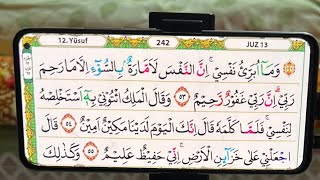 12. Yûsuf 242 JUZ 13
وَمَآ اُبَرِّئُ نَفْسِيْۚ اِنَّ النَّفْسَ لَاَمَّارَةٌ ۢ بِالسُّوْۤءِ اِلَّا مَا رَحِمَ
رَبِّيْۗ اِنَّ رَبِّيْ غَفُوْرٌ رَّحِيْمٌ ٥٣ وَقَالَ الْمَلِكُ ائْتُوْنِيْ بِهٖٓ اَسْتَخْلِصْهُ
لِنَفْسِيْۚ فَلَمَّا كَلَّمَهٗ قَالَ اِنَّكَ الْيَوْمَ لَدَيْنَا مَكِيْنٌ اَمِيْنٌ ٥٤ قَالَ
اجْعَلْنِيْ عَلٰى خَزَاۤىِٕنِ الْاَرْضِۚ اِنِّيْ حَفِيْظٌ عَلِيْمٌ ٥٥ وَكَذٰلِكَ